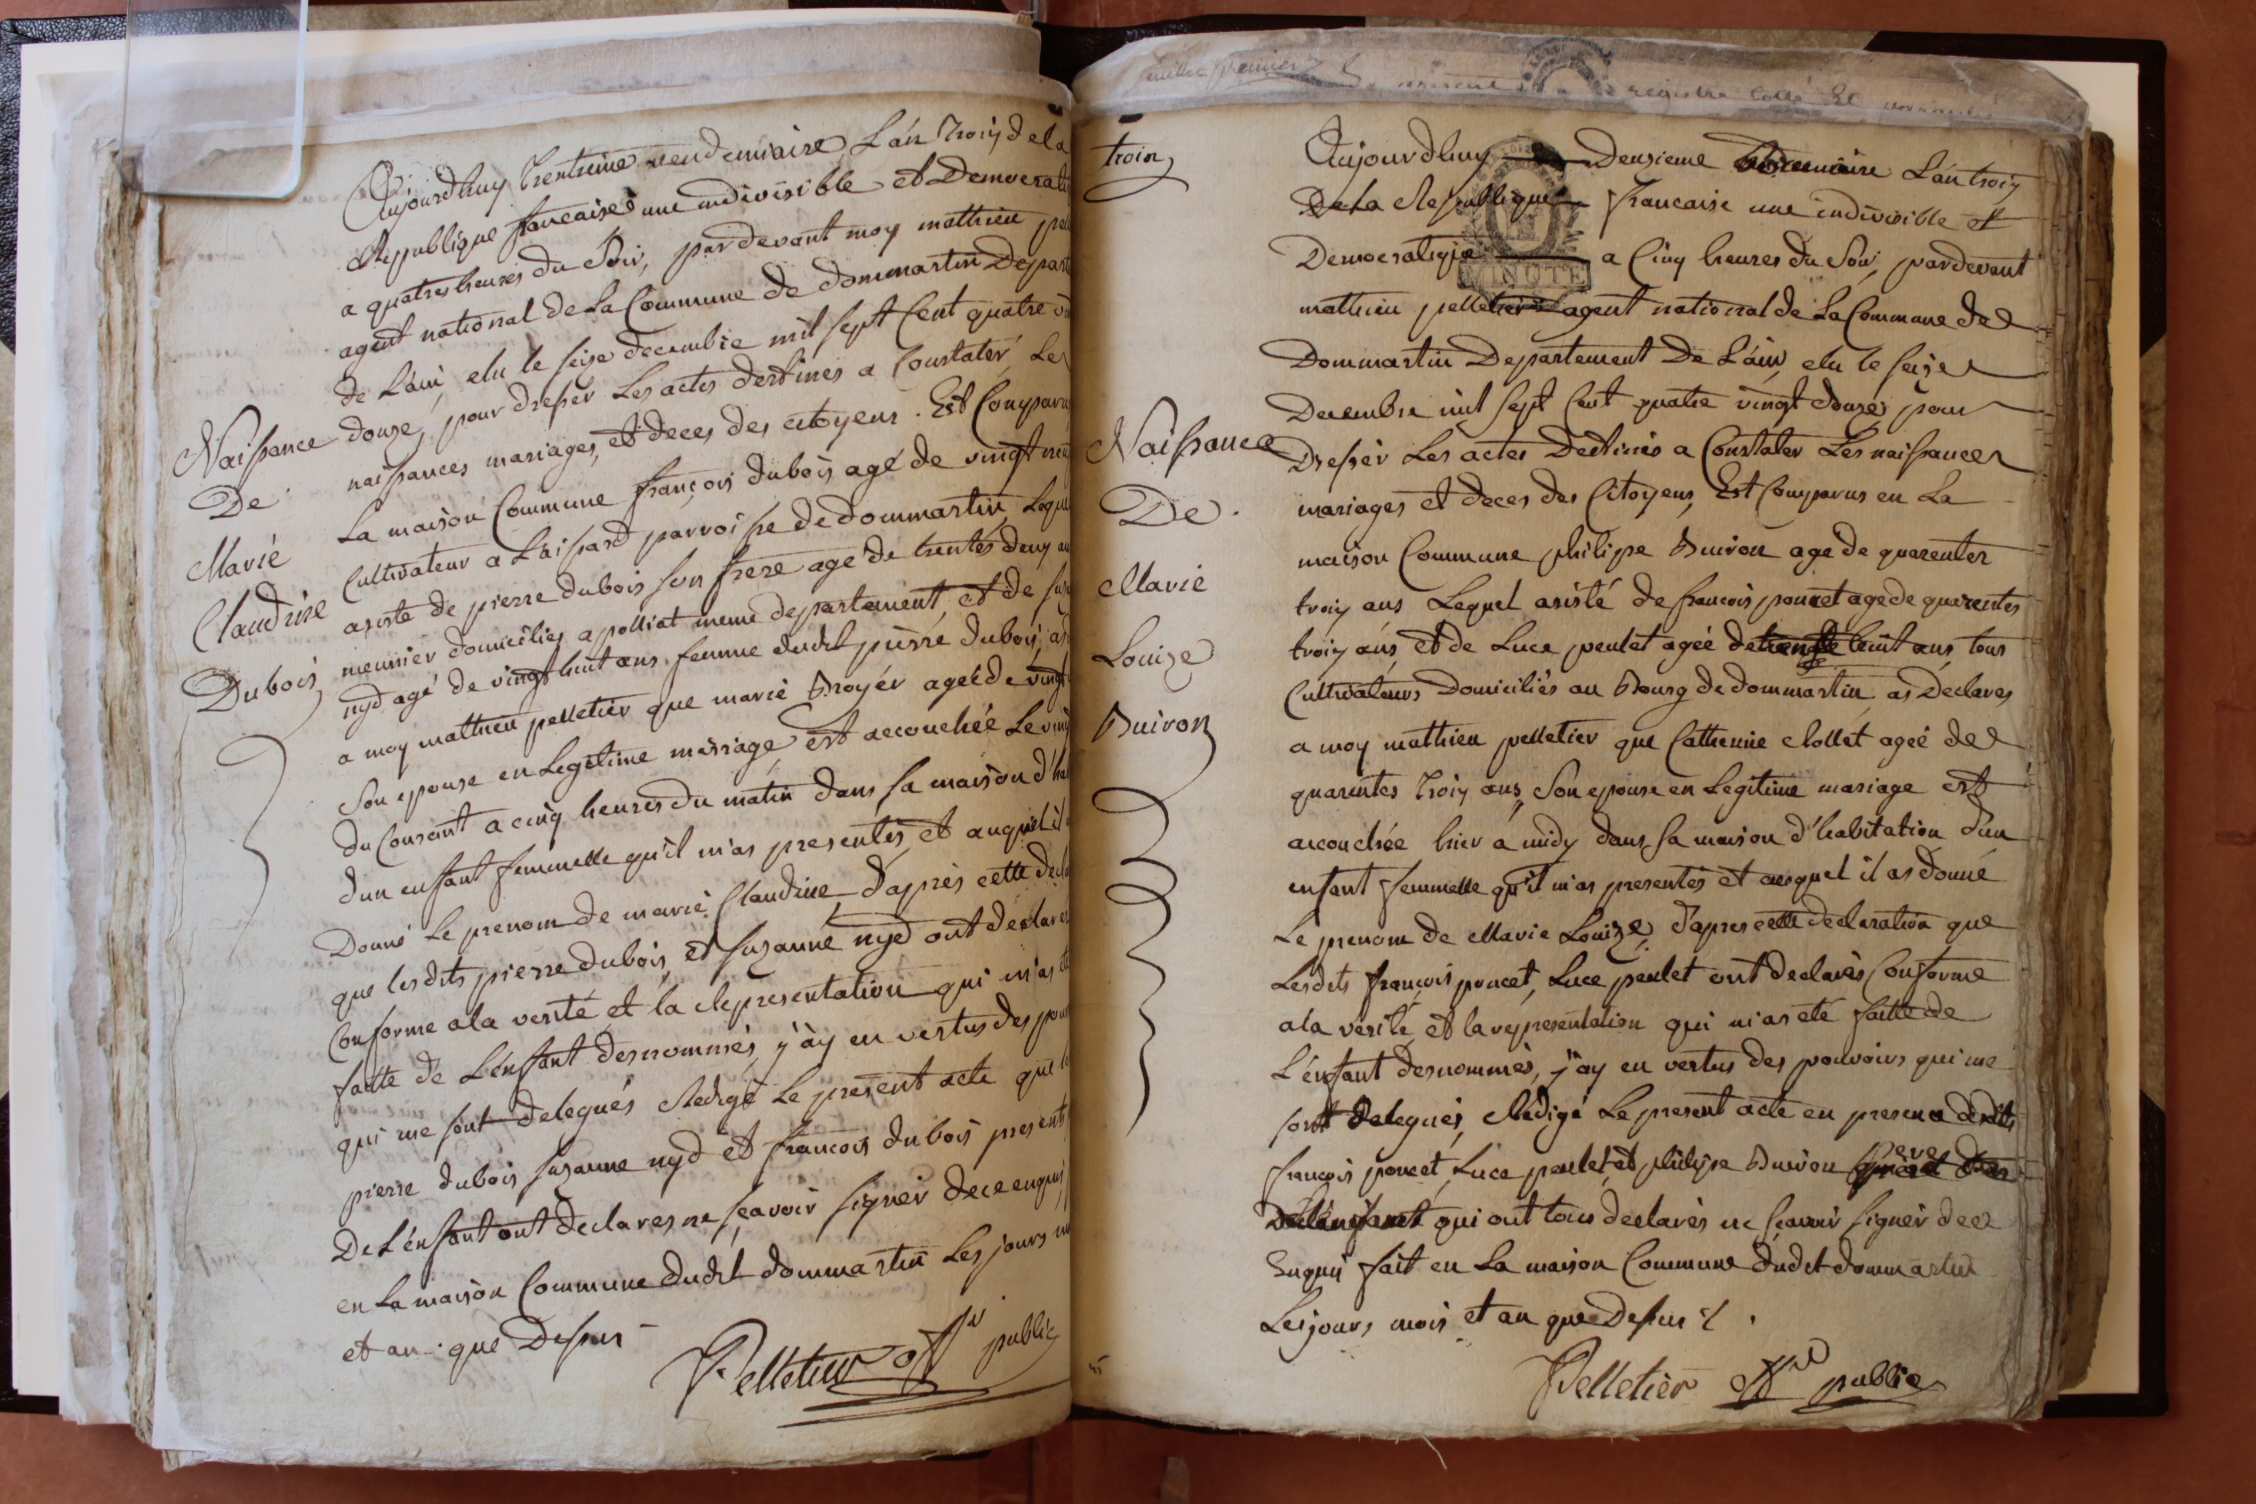 Aujourdhuy trentieme vendemiaire L'an troiz de la
Republique francaise une indivisible et Democrati
a quatres heures du Soir, pardevant moy mathieu pell
agent national de La Commune de dommartin Depart
de L'ain, elu le seise decembre mil sept Cent quatre vi
douze, pour dresser Les actes destines a Constater Les
naissances mariages, et deces des citoyens. Est Comparu
La maison Commune françois dubois agé de vingt
Cultivateur a L'aissard parroisse de dommartin Leque
asisté de pierre dubois son frere agé de trentes deux an
meunier domiciliez a polliat meme departement, et de suz
nyd agé de vingt huit ans femme dudit pierre dubois, as
a moy mathieu pelletier que marie Broyér ageé de vingt
Son epouse en Legitime mariage est accouchée Le ving
du Courant a cinq heures du matin dans sa maison d'ha
d'un enfant femmelle qu'il m'as presentés, et auquel il
Donné Le prenom de marie Claudine, d'aprés cette decla
que lesdits pierre dubois, et suzanne nyd ont declare
Conforme a la verité et la Representation qui m'as été
faitte de L'enfant desnommés, j'ay en vertus des pouv
qui me sont delegués Redigé Le present acte que
pierre dubois suzanne nyd et francois dubois present
De L'énfant ont declares ne sçavoir signer de ce enquis
en La maison Commune dudit dommartin Les jours
et an que Dessus
Pelletier off.er public
Naissance
De
Marie
Claudine
Dubois
troin
Aujourdhuy Deuxieme L'an troiz
De La Republique Francaise une indivisible et
Democratique a Cinq heures du Soir, pardevant
MINUTE
mathieu pelletier agent national de La Commune de
Dommartin Departement De L'ain, elu le seize
Decembre mil sept Cent quatre vingt douze, pour
Dresser Les actes Destinés a Constater Les naissances
mariages et deces des Citoyens, Est Comparus en La
maison Commune philipe Buiron age de quarentes
troiz ans Lequel asisté de francois poncet age de quarentes
troiz ans et de Luce peulet agée de trente huit ans, tous
Cultivateurs Domiciliés au Bourg de dommartin, as Declares
a moy mathieu pelletier que Catherine Collet ageé de
quarentes troiz ans, Son epouse en Legitime mariage est
accouchée hier a midy dans sa maison d'habitation d'un
enfant femmelle qu'il m'as presentés et auquel il as donné
Le prenom de Marie Louize, d'apres cette declaration que
Lesdits françois poncet, Luce peulet ont declarés Conforme
a la verité, et la representation qui m'as eté faitte de
L'énfant desnommés, j'ay en vertus des pouvoirs qui me
sont delegués, Rédigé Le present acte en presence desdits
françois poncet, Luce peulet, et philipe Buiron pere
De L'enfant qui ont tous declarés ne sçavoir signer de ce
Enquis fait en La maison Commune dudit dommartin
Les jours, mois et an que Dessus
Pelletier off.er public
Naissance
De
Marie
Louize
Buiron